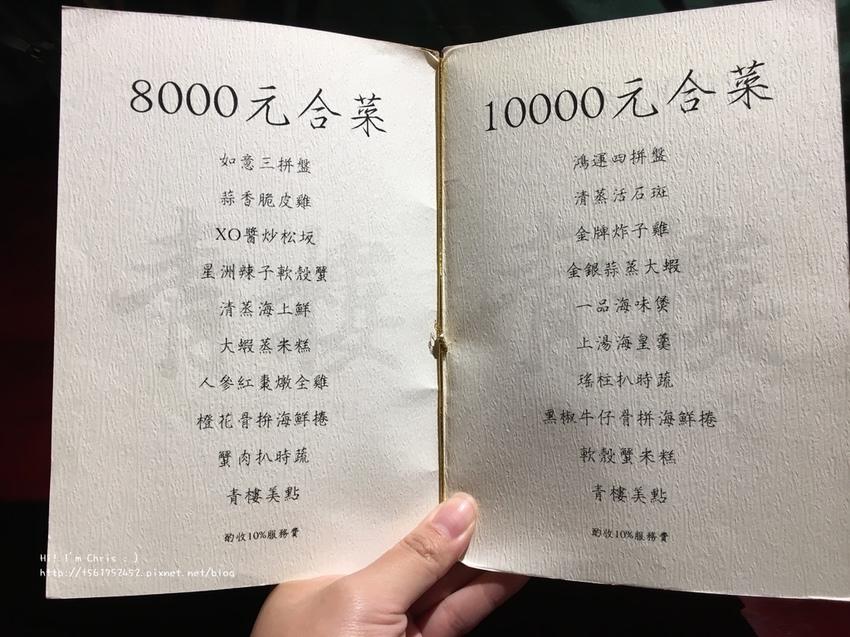 8000元合菜
如意三拼盤
蒜香脆皮雞
XO醬炒松坂
星洲辣子軟殼蟹
清蒸海上鮮
大蝦蒸米糕
人參紅棗燉全雞
橙花骨拚海鮮捲
蟹肉扒時蔬
青樓美點
酌收10%服務費
10000元合菜
鴻運四拼盤
清蒸活石斑
金牌炸子雞
金銀蒜蒸大蝦
一品海味煲
上湯海皇羹
瑤柱扒時蔬
黑椒牛仔骨拼海鮮捲
軟殼蟹米糕
青樓美點
酌收10%服務費
Hi! I'm Chris : )
http://t561952452.pixnet.net/blog